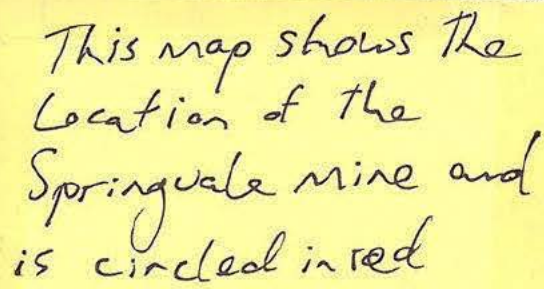 This map shows the
Location of the
Springvale mine and
is circled in red